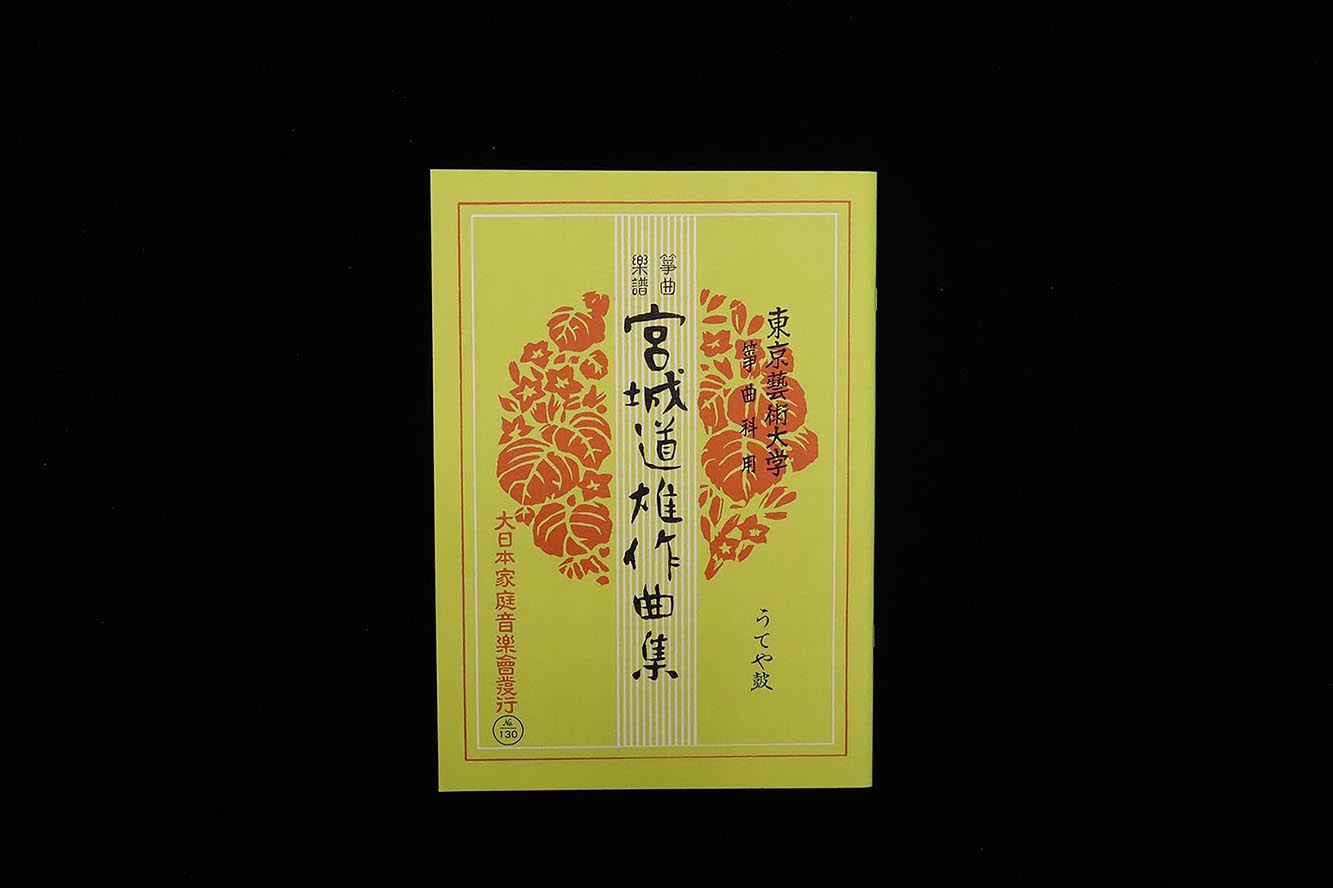 東京藝術大学
箏曲科用
うてや鼓
箏曲
樂譜
宮城道雄作曲集
大日本家庭音楽會發行
No.
130